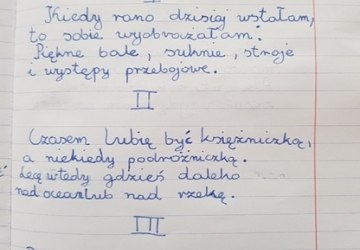 Kiedy rano dzisiaj wstałam,
to sobie wyobrażałam:
Piękne bale, suknie, stroje
i występy przebojowe.
II
Czasem lubię być księżniczką,
a niekiedy podróżniczką.
Lecę wtedy gdzieś daleko
nad ocean lub nad rzekę.
III